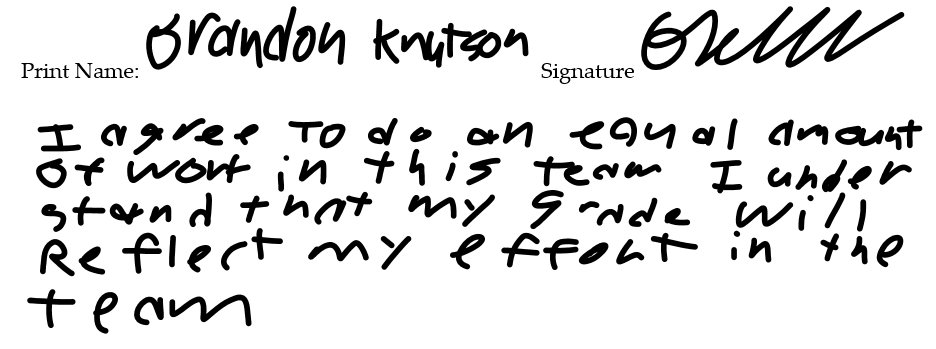 Print Name: Brandon Knutson Signature
I agree To do an equal amount
of work in this team I under
stand that my Grade will
Reflect my effort in the
team